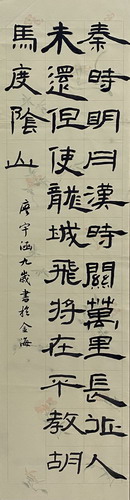 秦時明月漢時關萬里長征人
未還但使龍城飛將在不教胡
馬度陰山
宇涵九歲書於金海